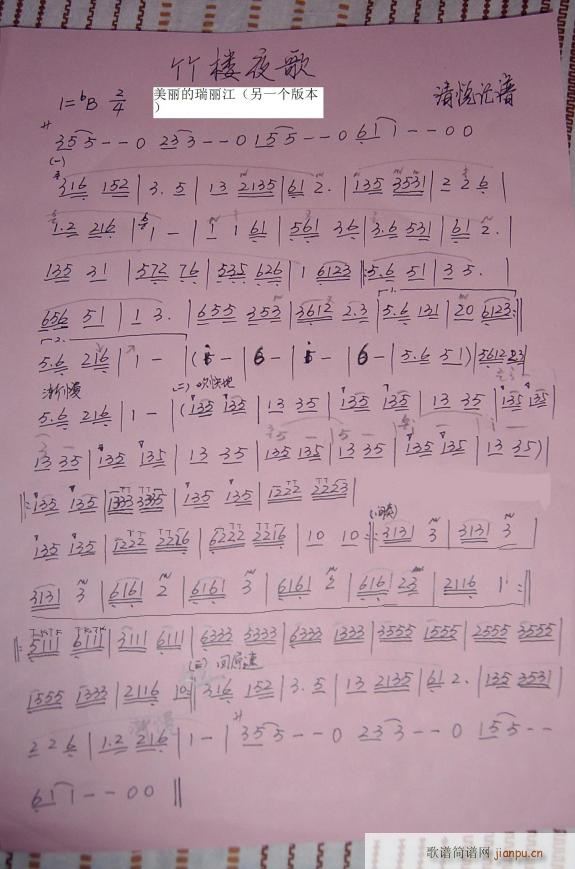 竹楼夜歌
1=bB 2/4
美丽的瑞丽江（另一个版本）
清悦记谱
サ 355--0 233--0 155--0 611--00
(一)
316 152 | 3. 5 | 13 2135 | 61 2. | 135 3531 | 2 26 |
1.2 216 | 1 - | 1 1 61 | 561 36 | 3.6 531 | 61 2. |
135 31 | 572 76 | 535 626 | 1 6123 |: 5.6 51 | 35. |
656 51 | 1 3. | 655 353 | 3612 2.3 | 5.6 131 | 20 6123 :|
5.6 216 | 1 - | (5 - | 6 - | 5 - | 6 - | 5.6 51) | 5612 23 |
渐慢 (二)
5.6 216 | 1 - | (135 135 | 13 35 | 135 135 | 13 35 | 135 135 |
13 35 | 135 135 | 13 35 | 135 135 | 13 35 | 135 135 | 13 35) |
|: 135 135 | 1333 3335 | 135 135 | 1222 2223 |
135 135 | 1222 2216 | 6222 2216 | 10 10 :|: 3131 3 | 3131 3 |
3131 3 | 6161 2 | 6161 3 | 6161 2 | 6161 23 | 2116 1 :|
|: 5111 6111 | 3111 6111 | 6333 5333 | 6333 1333 | 3555 1555 | 2555 3555 |
(三) 回原速
1555 1333 | 2116 10 :| 316 152 | 3. 5 | 13 2135 | 61 2. | 135 3531 |
2 2 6 | 1.2 216 | 1 - | サ 355--0 233--0 155--
611--00 ||
歌谱简谱网 jianpu.cn